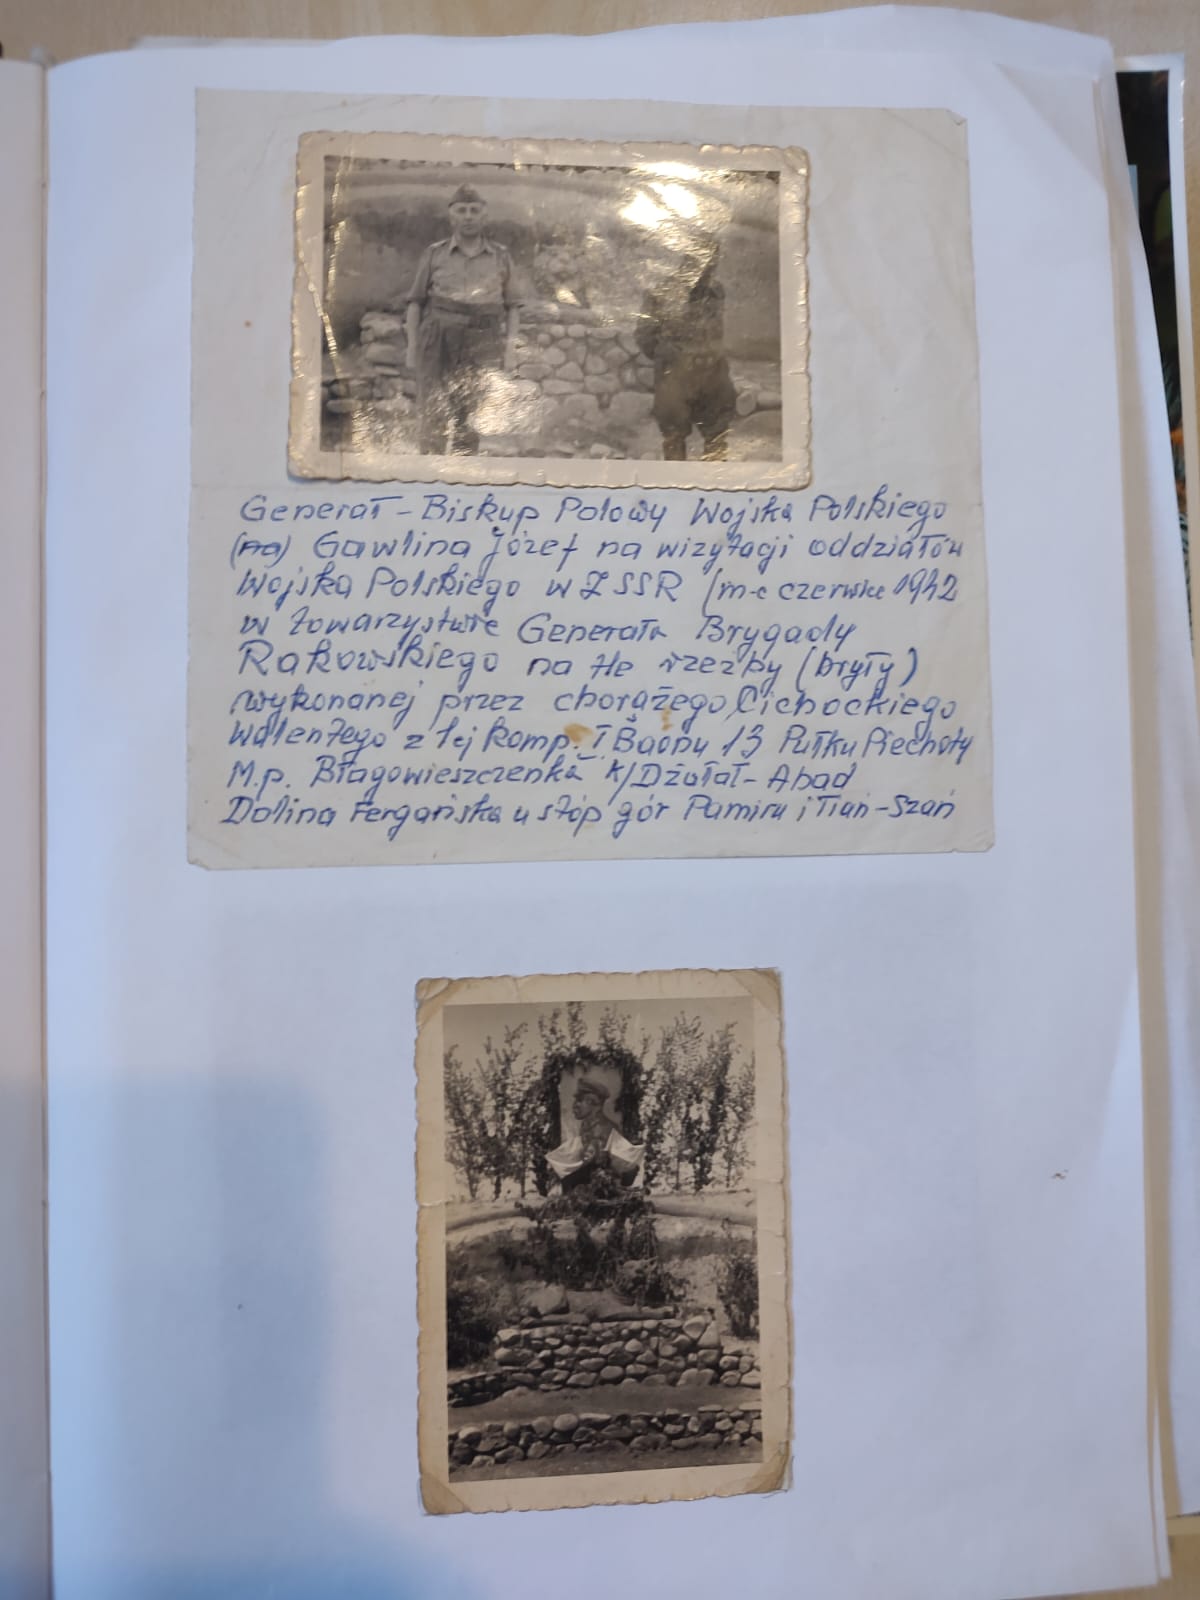 Generał – Biskup Polowy Wojska Polskiego
Gawlina Józef na wizytacji oddziałów
Wojska Polskiego w ZSSR (m-c czerwiec 1942
w towarzystwie Generała Brygady
Rakowskiego na tle rzeźby (bryły)
wykonanej przez chorążego Cichockiego
Walentego z 1ej komp. I Baonu 13 Pułku Piechoty
M.p. Błagowieszczenka k/Dżałał-Abad
Dolina Fergańska u stóp gór Pamiru i Tiań-Szań